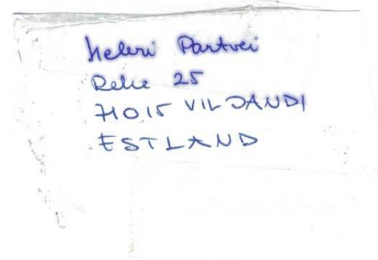 Heleri Partvei
Relie 25
71015 VILJANDI
ESTLAND